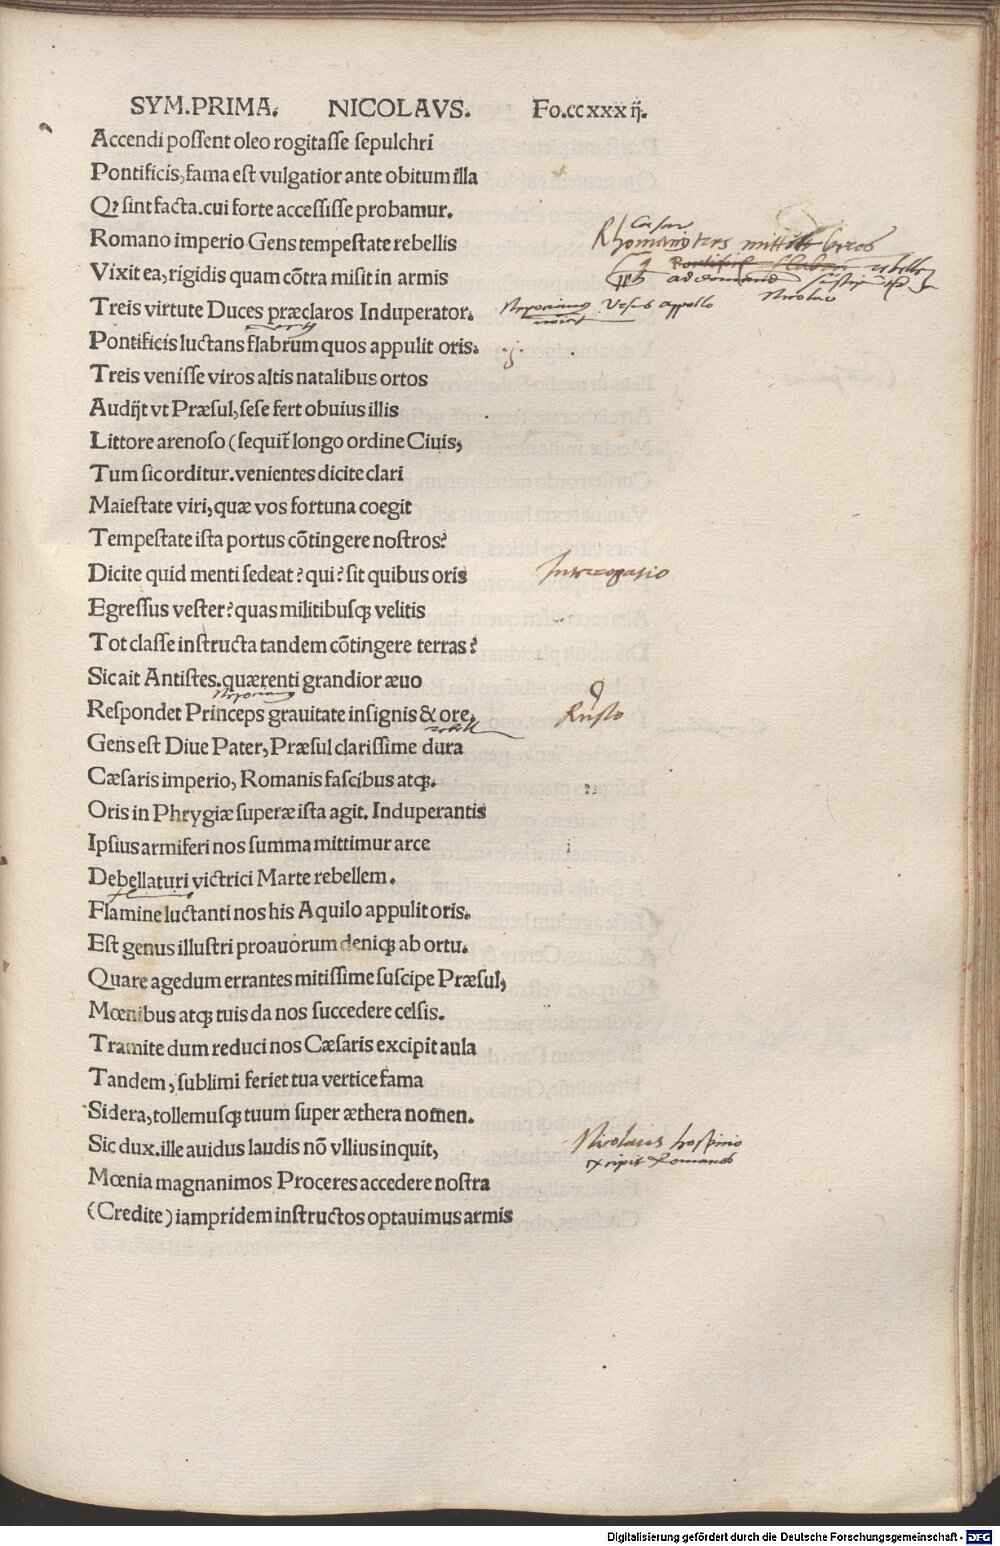 SYM.PRIMA. NICOLAVS. Fo.ccxxxij.
Accendi possent oleo rogitasse sepulchri
Pontificis, fama est vulgatior ante obitum illa
Qꝫ sint facta. cui forte accessisse probamur.
Romano imperio Gens tempestate rebellis
Vixit ea, rigidis quam cõtra misit in armis
Treis virtute Duces præclaros Induperator.
Pontificis luctans flabrum quos appulit oris.
Treis venisse viros altis natalibus ortos
Audijt vt Præsul, sese fert obuius illis
Littore arenoso (sequit̃ longo ordine Ciuis,
Tum sic orditur. venientes dicite clari
Maiestate viri, quæ vos fortuna coegit
Tempestate ista portus cõtingere nostros?
Dicite quid menti sedeat? qui? sit quibus oris
Interrogatio
Egressus vester? quas militibusqꝫ velitis
Tot classe instructa tandem cõtingere terras?
Sic ait Antistes. quærenti grandior æuo
Respondet Princeps grauitate insignis & ore.
Gens est Diue Pater, Præsul clarissime dura
Cæsaris imperio, Romanis fascibus atqꝫ.
Oris in Phrygiæ superæ ista agit. Induperantis
Ipsius armiferi nos summa mittimur arce
Debellaturi victrici Marte rebellem.
Flamine luctanti nos his Aquilo appulit oris.
Est genus illustri proauorum deniqꝫ ab ortu.
Quare agedum errantes mitissime suscipe Præsul,
Mœnibus atqꝫ tuis da nos succedere celsis.
Tramite dum reduci nos Cæsaris excipit aula
Tandem, sublimi feriet tua vertice fama
Sidera, tollemusqꝫ tuum super æthera nomen.
Sic dux. ille auidus laudis nõ vllius inquit,
Nicolaus hospitio
excipit Romanos
Mœnia magnanimos Proceres accedere nostra
(Credite) iampridem instructos optauimus armis
Digitalisierung gefördert durch die Deutsche Forschungsgemeinschaft - DFG